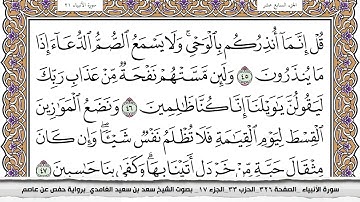 سورة الأنبياء ٢١
الجزء السابع عشر
قُلْ إِنَّمَآ أُنذِرُكُم بِٱلْوَحْىِ ۚ وَلَا يَسْمَعُ ٱلصُّمُّ ٱلدُّعَآءَ إِذَا
مَا يُنذَرُونَ ٤٥ وَلَئِن مَّسَّتْهُمْ نَفْحَةٌ مِّنْ عَذَابِ رَبِّكَ
لَيَقُولُنَّ يَٰوَيْلَنَآ إِنَّا كُنَّا ظَٰلِمِينَ ٤٦ وَنَضَعُ ٱلْمَوَٰزِينَ
ٱلْقِسْطَ لِيَوْمِ ٱلْقِيَٰمَةِ فَلَا تُظْلَمُ نَفْسٌ شَيْـًٔا ۖ وَإِن كَانَ
مِثْقَالَ حَبَّةٍ مِّنْ خَرْدَلٍ أَتَيْنَا بِهَا ۗ وَكَفَىٰ بِنَا حَٰسِبِينَ ٤٧
سورة الأنبياء _الصفحة ٣٢٦_ الحزب ٣٣_ الجزء ١٧_ بصوت الشيخ سعد بن سعيد الغامدي_ برواية حفص عن عاصم